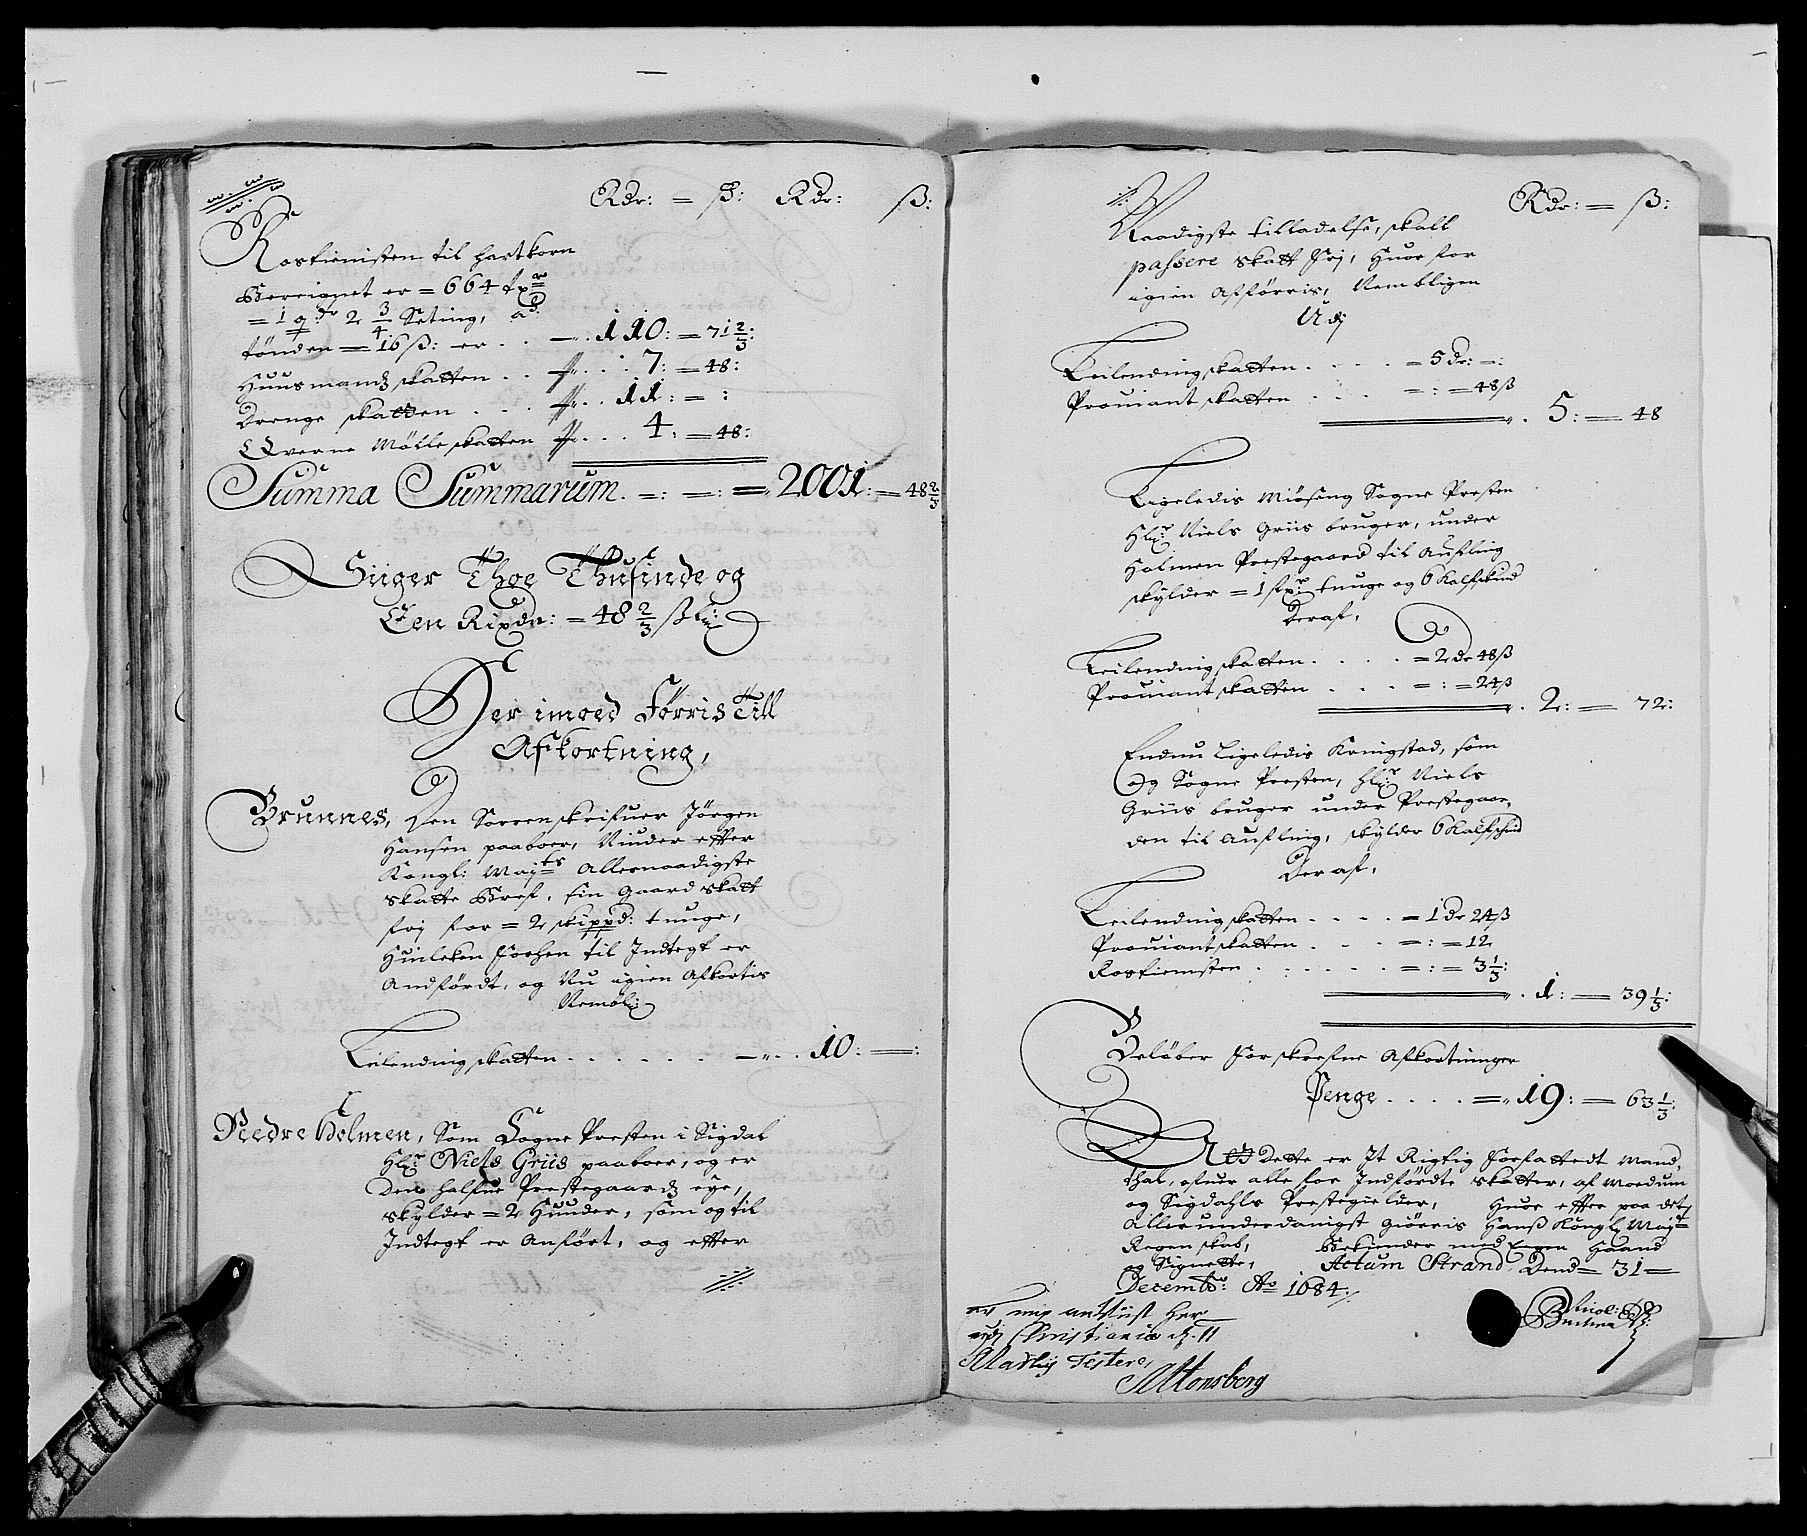 Rdr: = ß: Rdr: ß:
Rostienisten til hartkorn
Bereignet er = 664 txr
= 1 qdr 2 3/4 Seting, ad
tønden = 16 ß: er . . — . 110: = 71 2/3:
Huusmandsskatten . . . . 7: = 48:
Drenge skatten . . . . . 11: = :
Qverne Mølleskatten . . . 4: = 48:
Summa Summarum. =: =: = 2001: = 48 2/3
Siiger Thoe Thusinde og
Een Rixdr: = 48 2/3 ß
Her imoed Førris Till
Afkortning,
Brunnes, Den Sorrenskrifuer Jørgen
Hansen paaboer, Niuder effter
Kongl: Mayts Allernaadigste
skatte Bref, sin gaard skatt
frj for = 2 skippd: tunge,
Huilcken forhen til Indtegt er
Andførdt, og Nu igien Afkortis
Nemblig
Leilendingskatten . . . . . . — . . 10: — :
Nedre Holmen, Som Sogne Presten i Sigdal
Hr: Niels Griis paaboer, og er
Den halfue Prestegaards eye,
skylder = 2 Huuder, som og til
Indtegt er Anført, og effter
Rdr: = ß:
Naadigste tilladelse, skall
passere skatt frj, Huor for
igien Afførris, Nembligen
Udj
Leilendingskatten . . . . = 5 dr: =:
Prouiantskatten . . . . =: = 48 ß
. 5: = 48
Ligeledis Miøseng Sogne Presten
Hr: Niels Griis bruger, under
Holmen Prestegaard til Aufling
skylder = 1 tunge og 6 Kalfskind
Deraf,
Leilendingskatten . . . . = 2 dr 48 ß
Prouiantskatten . . . . =: = 24 ß
. 2: = 72:
Endnu Ligeledis Kongstad, som
og Sogne Presten, Hr: Niels
Griis bruger under Prestegaar-
den til Aufling, skylder 6 Kalfschind
Deraf,
Leilendingskatten . . . . = 1 dr 24 ß
Prouiantskatten . . . . =: = 12
Rostiensten . . . . . . =: = 3 1/3:
. 1: = 39 1/3:
Beløber forskrefne Afkortninger
Penge . . . . = 19: = 63 1/3:
At Dette er It Rigtig forfattedt Mand-
thal, ofuer alle for Indførdte skatter, af Moedum
og Sigdahls Prestegielder, Huor effter paa det
Allerunderdanigst giørris Hanß Kongl. Mayts
Regenskab, Bekiender med Egen Haand
og Signette, Actum Strand Dend = 31 =
Decembr: Ao 1684
er mig anviist her
udj Christiania d. 11
Martij